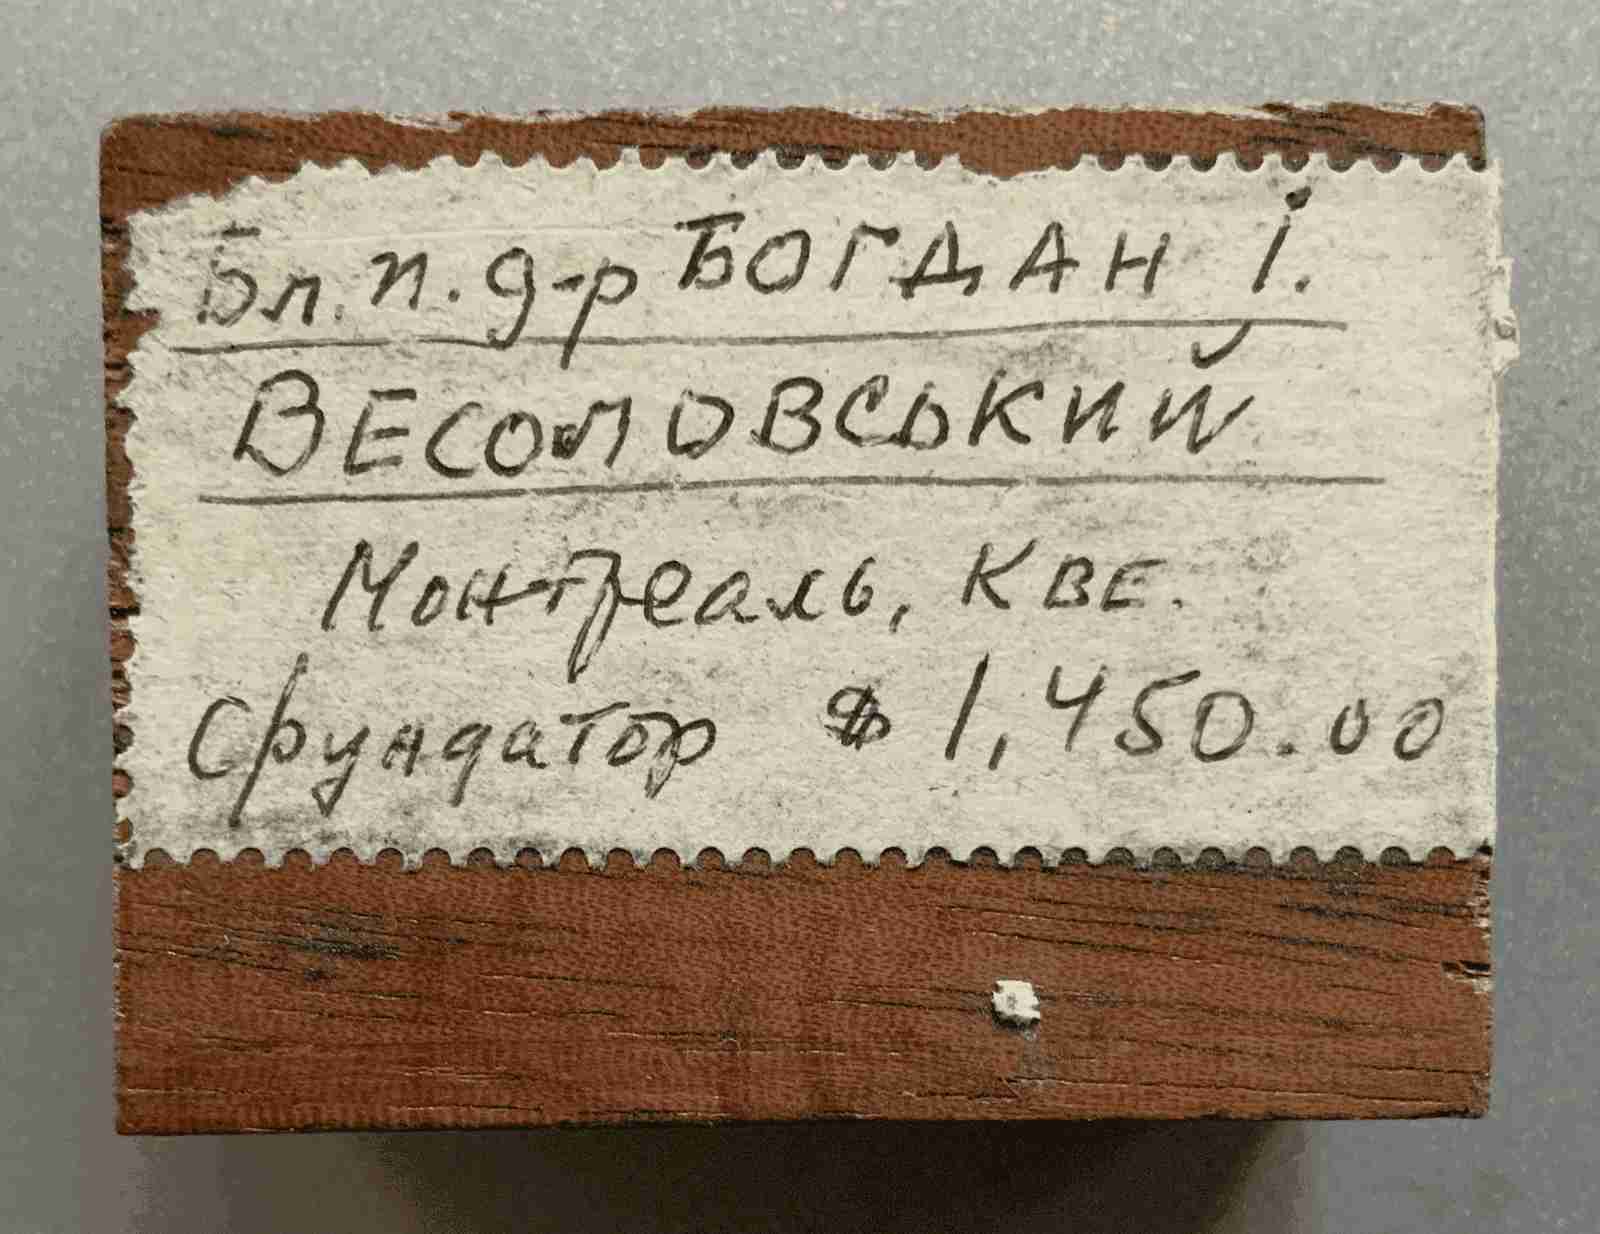 Бл. п. д-р БОГДАН І.
ВЕСОЛОВСЬКИЙ
Монтреаль, КВЕ.
Фундатор $ 1,450.00